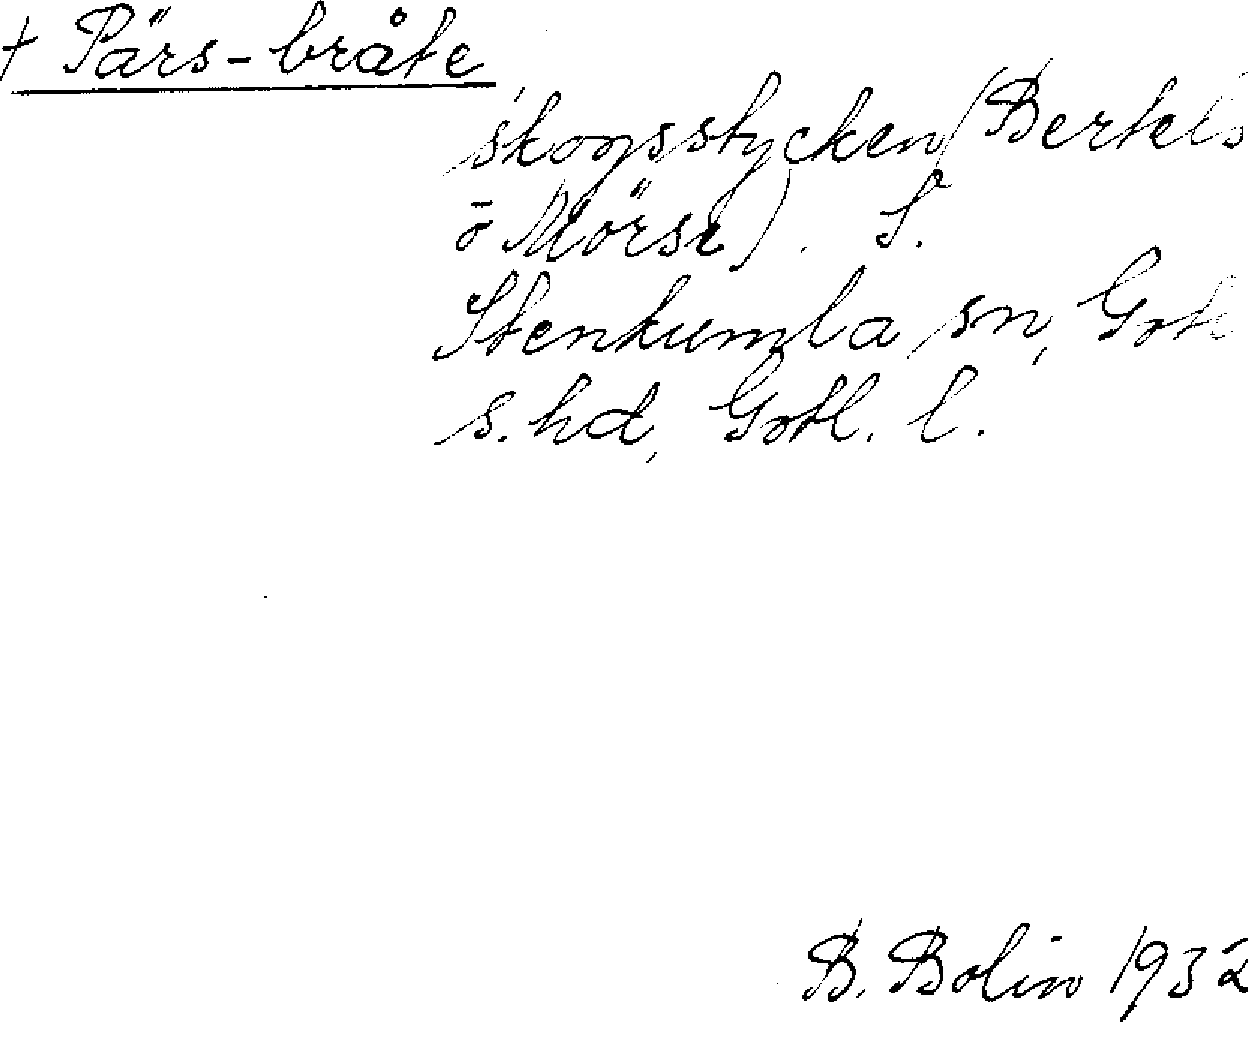 † Pärs-bråte
skogsstycken (Bertels
ō Mörse). S.
Stenkumla sn, Gotl
s. hd, Gotl. l.
B. Bolin 1932